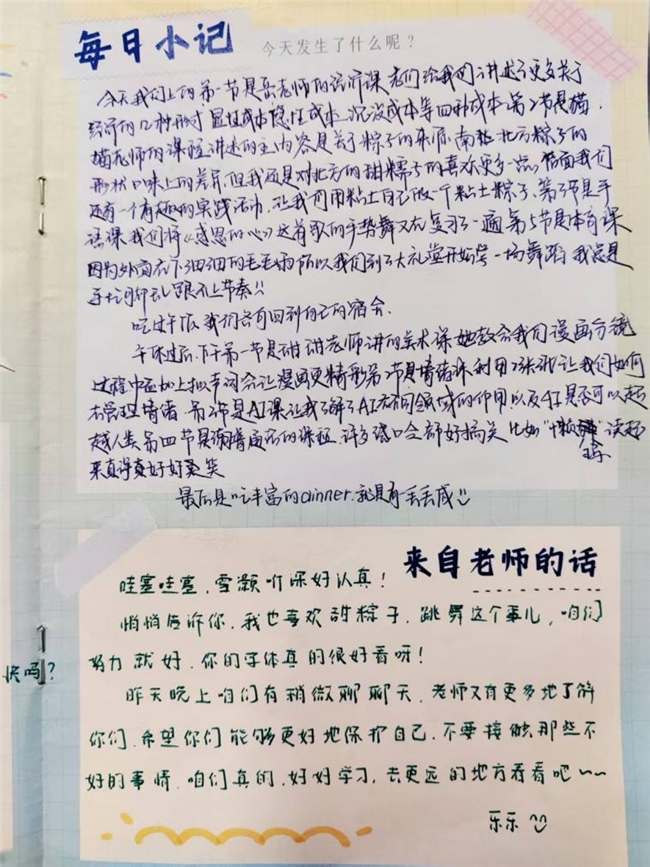 每日小记 今天发生了什么呢？
今天我们上的第一节是岳老师的经济课 老师给我们讲述了更多关于
经济的几种形式 显性成本 隐性成本 沉没成本等四种成本 第2节是猫
猫老师的课程 讲述的主内容是关于粽子的来历 南北方粽子的
形状口味上的差异 但我还是对北方的甜粽子的喜欢更多一点 后面我们
还有一个有趣的实践活动，让我们用粘土自己做一个粘土粽子、第3节是手
语课 我们将《感恩的心》这首歌的手势舞又在复习了一遍 第5节是体育课
因为外面在下细细的毛毛雨 所以我们到了大礼堂开始学一场舞蹈 我总是
手忙脚乱 跟不上节奏!!
吃过午饭 我们各自回到自己的宿舍.
午休过后，下午第一节是甜甜老师讲的美术课 她教会我们漫画分镜
过程中要加上拟声词会让漫画更精彩 第2节是情绪课 利用2张纸让我们如何
去管理情绪 第3节是AI课 让我了解了AI在不同领域的作用 以及AI是否可以超
越人类 第四节是 的课程 许多 口令都好搞笑 比如" "读起
来真得真好好笑
最后是吃丰富的dinner. 就是有一丢丢咸
来自老师的话
哇塞哇塞，雪颜听课好认真！
悄悄告诉你，我也喜欢甜粽子，跳舞这个事儿，咱们
努力就好，你的字体真的很好看呀！
昨天晚上咱们有稍微聊聊天，老师又有更多地了解
你们，希望你们能够更好地保护自己，不要接触那些不
好的事情，咱们真的，好好学习，去更远的地方看看吧~~
乐乐
快吗？